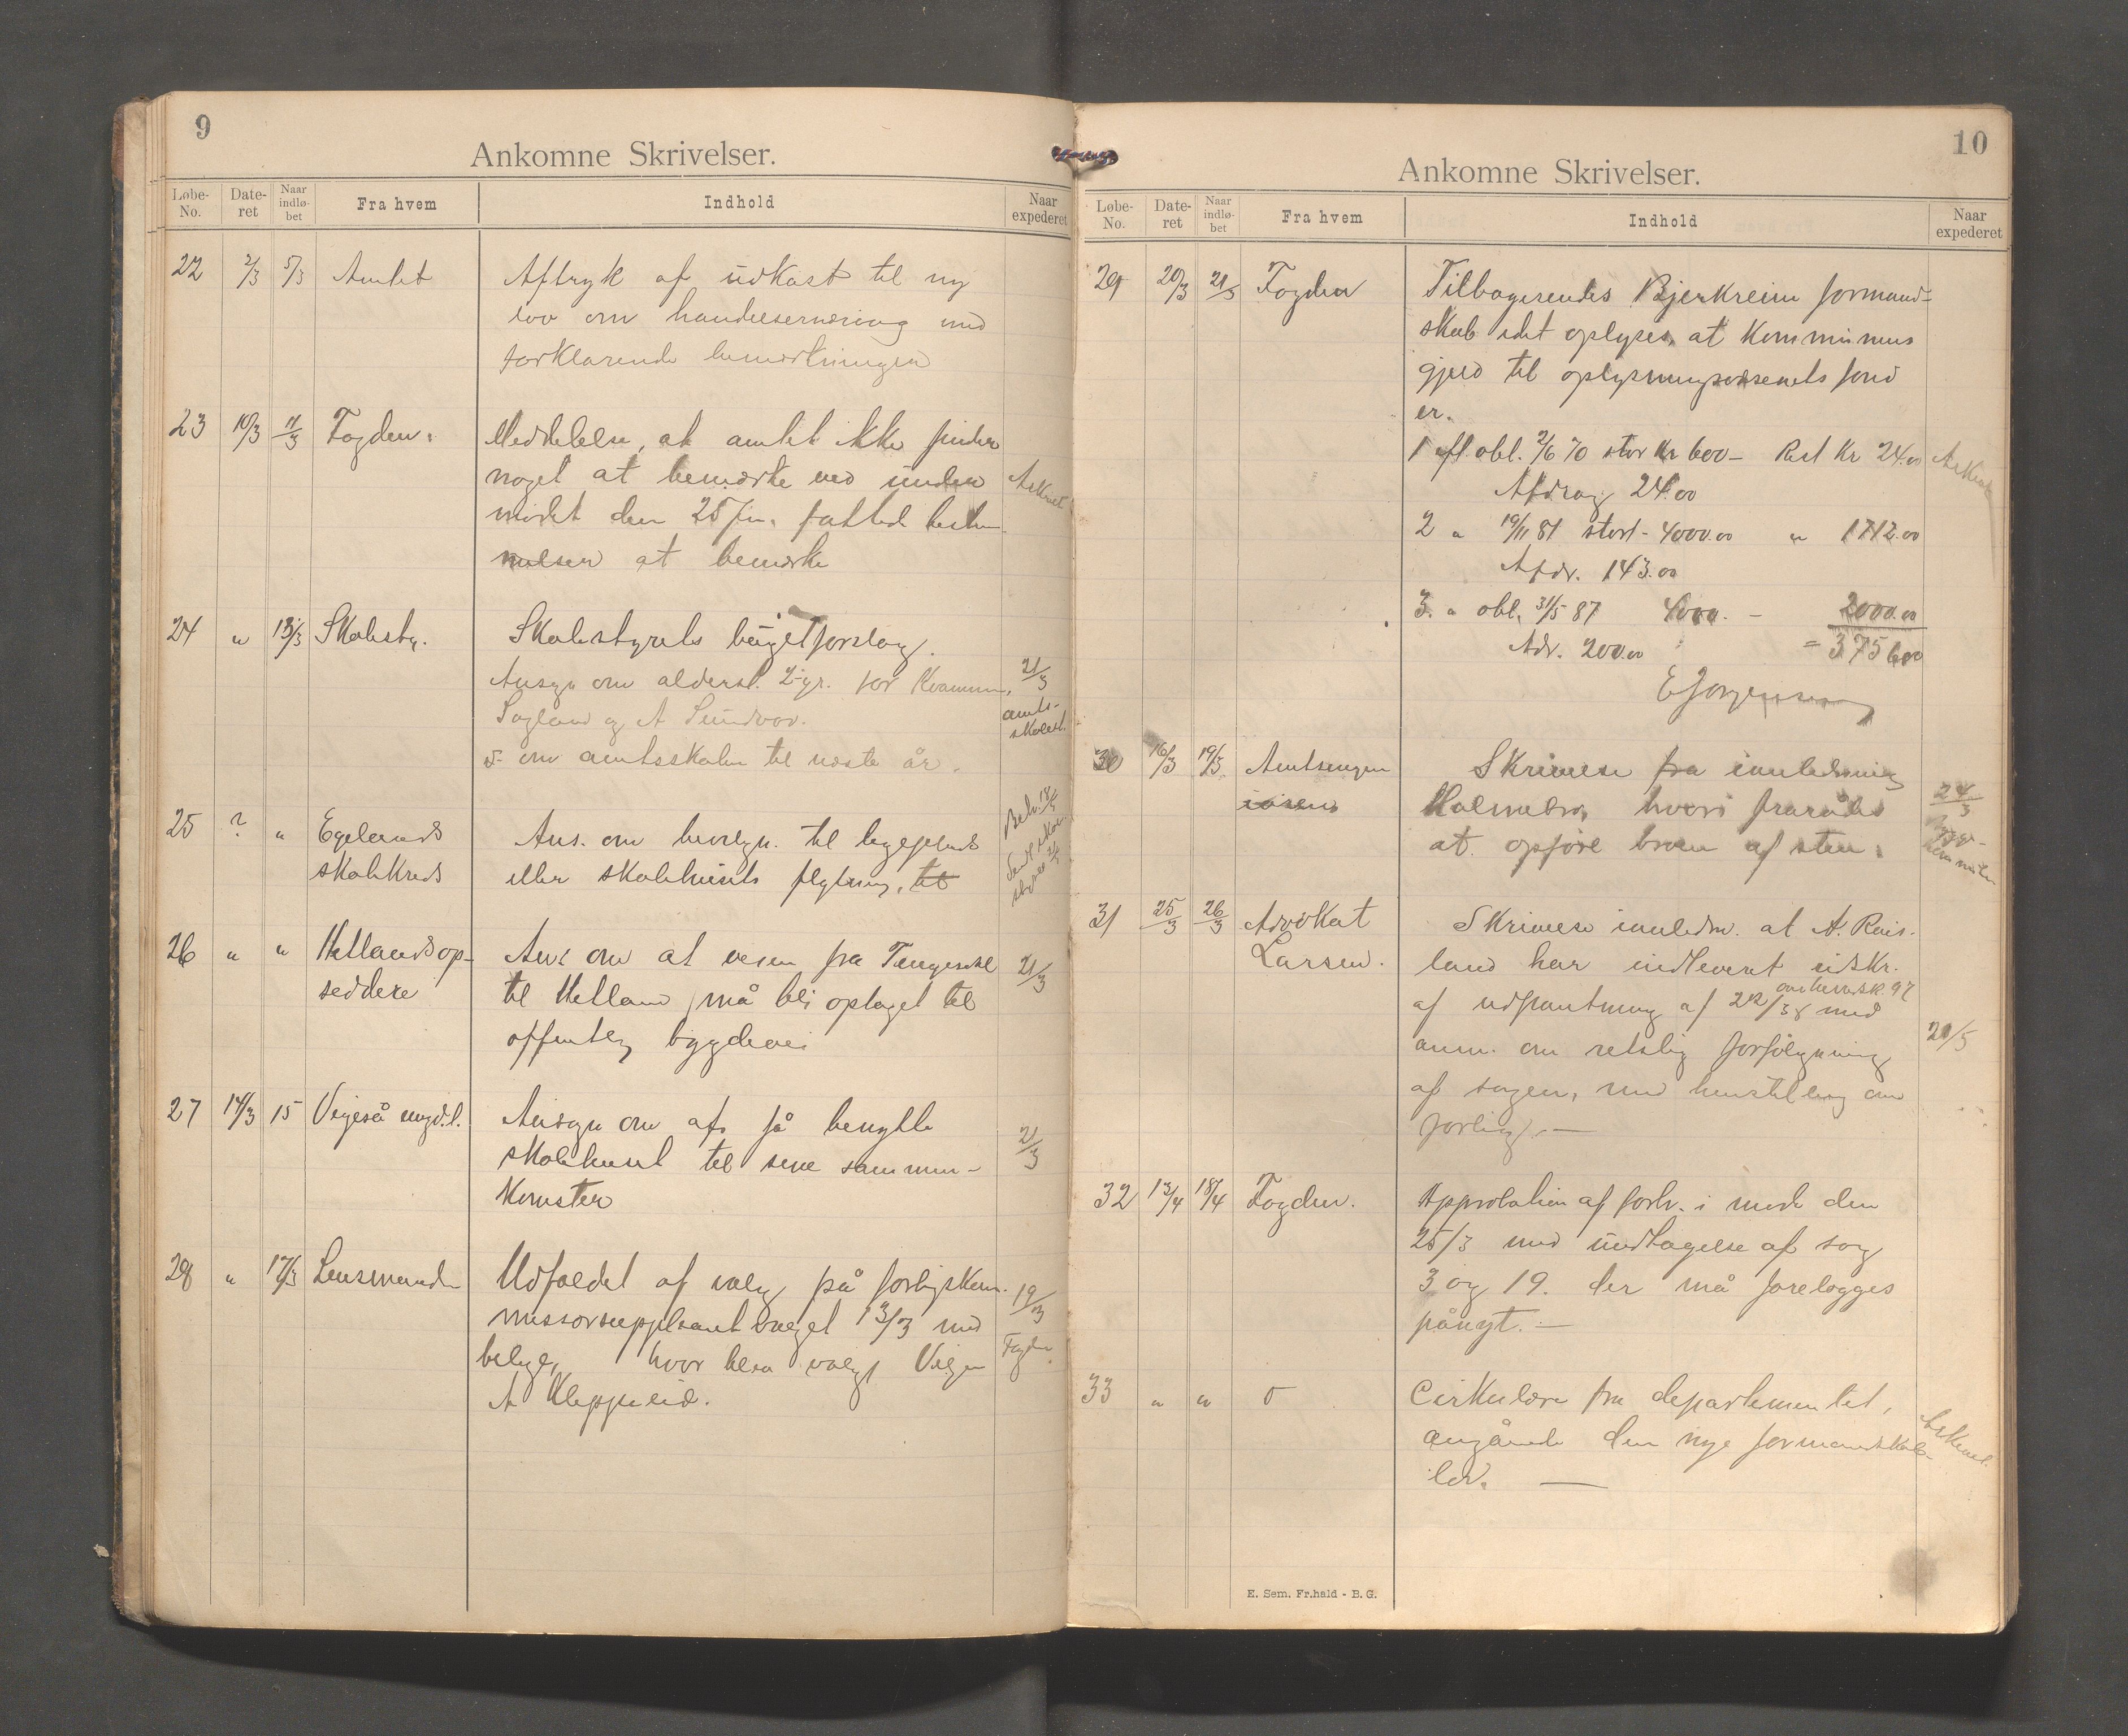 9
Ankomne Skrivelser.
Løbe-No. Dateret Naar indløbet Fra hvem Indhold Naar expederet
22 2/3 5/3 Amtet Aftryk af udkast til ny
lov om handelsernæring med
forklarende bemærkninger
23 10/3 11/3 Fogden. Meddelelse, at amtet ikke finder
noget at bemærke ved under
mödet den 25/ fattede bestem-
melser at bemærke
Arkivet
24 " 13/3 Skolesty. Skolestyrets bugetforslag.
Ansøgn om alderst. for Kvammen,
Sagland og A Sundvor.
om amtsskolen til næste år.
21/3
amts-
skolest.
25 ? " Egelands
skolekreds
Ans. om bevilgn. til legeplads
eller skolehusets flytning. til
26 " " Hetlands op-
siddere
Ans om at veien fra Tengesdal
til Hetland må bli optaget til
offentlig bygdevei
21/3
27 14/3 15 Vigeså ungd.l. Ansøgn om at få benytte
skolehuset til sine sammen-
komster
21/3
28 " 17/3 Lensmanden Udfaldet af valg på forligskom-
missorsuppleant valget 13/3 med
belyst, hvor blev valgt
A Kleppelid.
19/3
Fogden
10
Ankomne Skrivelser.
Løbe-No. Dateret Naar indløbet Fra hvem Indhold Naar expederet
29 20/3 21/3 Fogden Tilbagesendes Bjerkreim formand-
skab idet oplyses, at kommunens
gjeld til oplysningsvæsenets fond
er.
1 afl obl. 2/6 70 stor kr 600 - Rest kr 24.00
Afdrag 24.00
2 " 19/11 81 stort - 4000.00 " 1712.00
Afdr. 143.00
3. " obl. 31/5 87 4000. - 2000.00
Adr. 200.00 = 3756.00
E Jörgensen
Arkivet
30 16/3 19/3 Amtsingen
iören
Skrivelse fra
hvori frarådes
at opföre broen af sten.
24/3
bygge-
kommiten
31 25/3 26/3 Advokat
Larsen.
Skrivelse at A. Reis-
land har indleveret udskr.
af udpantning af med
anm. om retslig forfölgning
af sagen, med henstilling om
forlig. —
32 13/4 18/4 Fogden. Approbation af forh. i möde den
25/3 med undtagelse af sag
3 og 19. der må forelægges
pånyt. —
33 " " Cirkulære fra departementet,
angående den nye formandskabs-
lov. —
Arkivet.
E. Sem. Fr.hald - B. G.